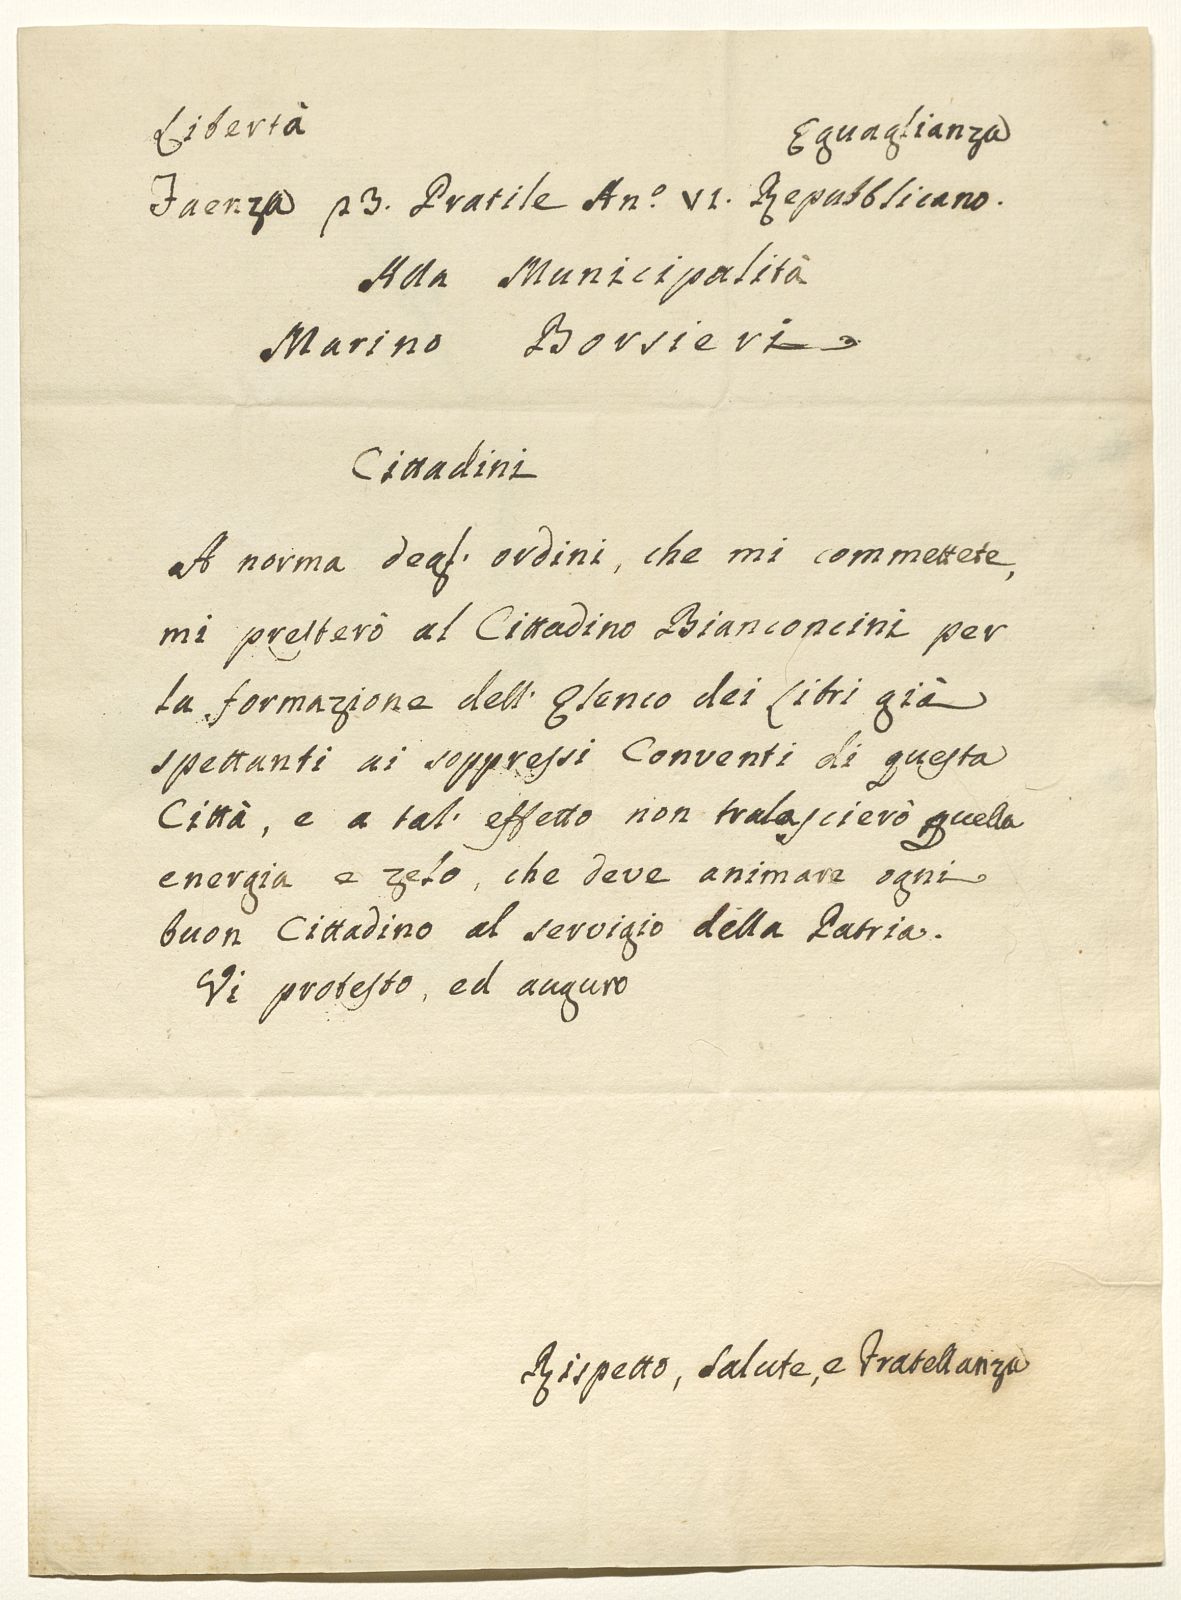 Libertà Eguaglianza
Faenza 23. Pratile An.º VI. Repubblicano.
Alla Municipalità
Marino Borsieri
Cittadini
A norma degl' ordini, che mi commettete,
mi presterò al Cittadino Bianconcini per
la formazione dell' Elenco dei Libri già
spettanti ai soppressi Conventi di questa
Città, e a tal' effetto non tralascierò quella
energia e zelo, che deve animare ogni
buon Cittadino al servigio della Patria.
Vi protesto, ed auguro
Rispetto, Salute, e Fratellanza